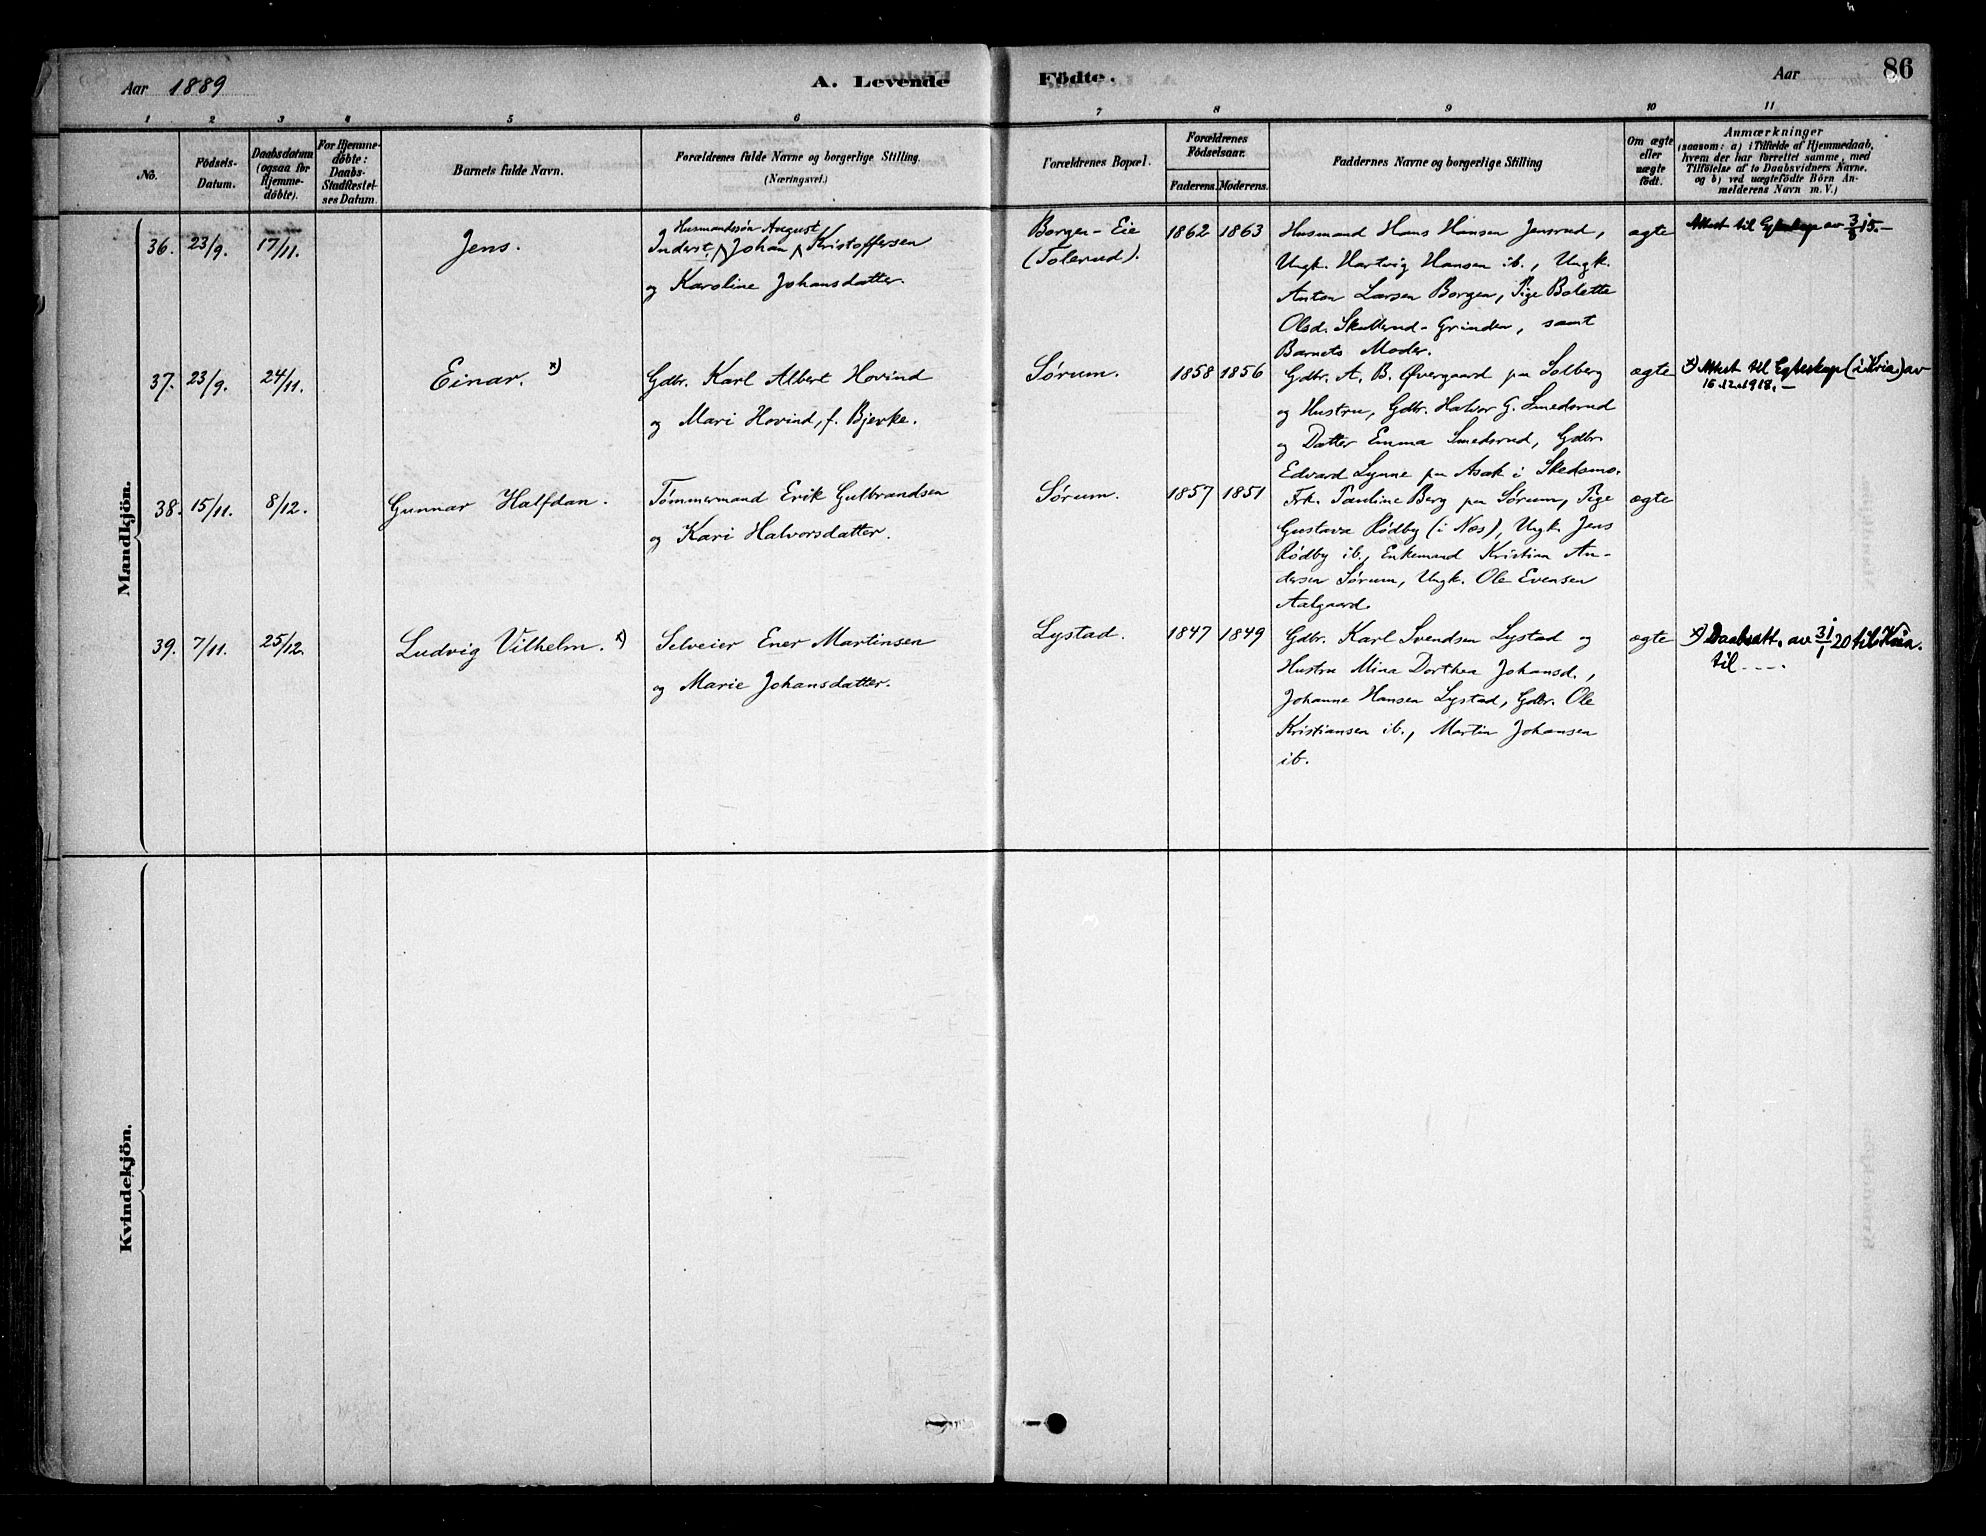 Aar 1889
A. Levende Födte.
Aar 86
1 2 3 4 5 6 7 8 9 10 11
No.
Födsels-
Datum.
Daabsdatum
(ogsaa for
Hjemme-
döbte).
For Hjemme-
döbte:
Daabs-
Stadfæstel-
ses Datum.
Barnets fulde Navn.
Forældrenes fulde Navne og borgerlige Stilling.
(Næringsvei.)
Forældrenes Bopæl.
Forældrenes
Födselsaar.
Faderens. Moderens.
Faddernes Navne og borgerlige Stilling
Om ægte
eller
uægte
födt.
Anmærkninger
(saasom: a) i Tilfælde af Hjemmedaab,
hvem der har forrettet samme, med
Tilföielse af to Daabsvidners Navne,
og b) ved uægtefödte Börn An-
melderens Navn m. V.)
Mandkjön.
36. 23/9. 17/11. Jens.
Husmandssøn August
Inderst, Johan Kristoffersen
og Karoline Johansdatter.
Borgen-Eie
(Tolerud).
1862 1863
Husmand Hans Hansen Jensrud,
Ungk. Hartvig Hansen ib., Ungk.
Anton Larsen Borgen, Pige Bolette
Olsd. Skullerud-Grinden, samt
Barnets Moder.
ægte
Attest til Egteskap av 3/8 15.-
37. 23/9. 24/11. Einar. x)
Gdbr. Karl Albert Hovind
og Mari Hovind, f. Bjerke.
Sørum.
1858 1856
Gdbr. A. B. Øvergaard paa Solberg
og Hustru, Gdbr. Halvor G. Smedsrud
og Datter Emma Smedsrud, Gdbr.
Edvard Lynne paa Asak i Skedsmo.
ægte
x) Attest til Egteskap (i Kria) av
16.12.1918.-
38. 15/11. 8/12. Gunnar Halfdan.
Tømmermand Erik Gulbrandsen
og Kari Halvorsdatter.
Sørum.
1857 1851
Frk. Pauline Berg paa Sørum, Pige
Gustava Rødby (i Nes), Ungk. Jens
Rødby ib., Enkemand Kristian An-
dersen Sørum, Ungk. Ole Evensen
Aalgaard.
ægte
39. 7/11. 25/12. Ludvig Vilhelm. x)
Selveier Ener Martinsen
og Marie Johansdatter.
Lystad.
1847 1849
Gdbr. Karl Svendsen Lystad og
Hustru Mina Dorthea Johansd.,
Johanne Hansen Lystad, Gdbr. Ole
Kristiansen ib., Martin Johansen
ib.
ægte
x) Daabsatt. av 31/1 20 til Kria.
til ....
Kvindekjön.